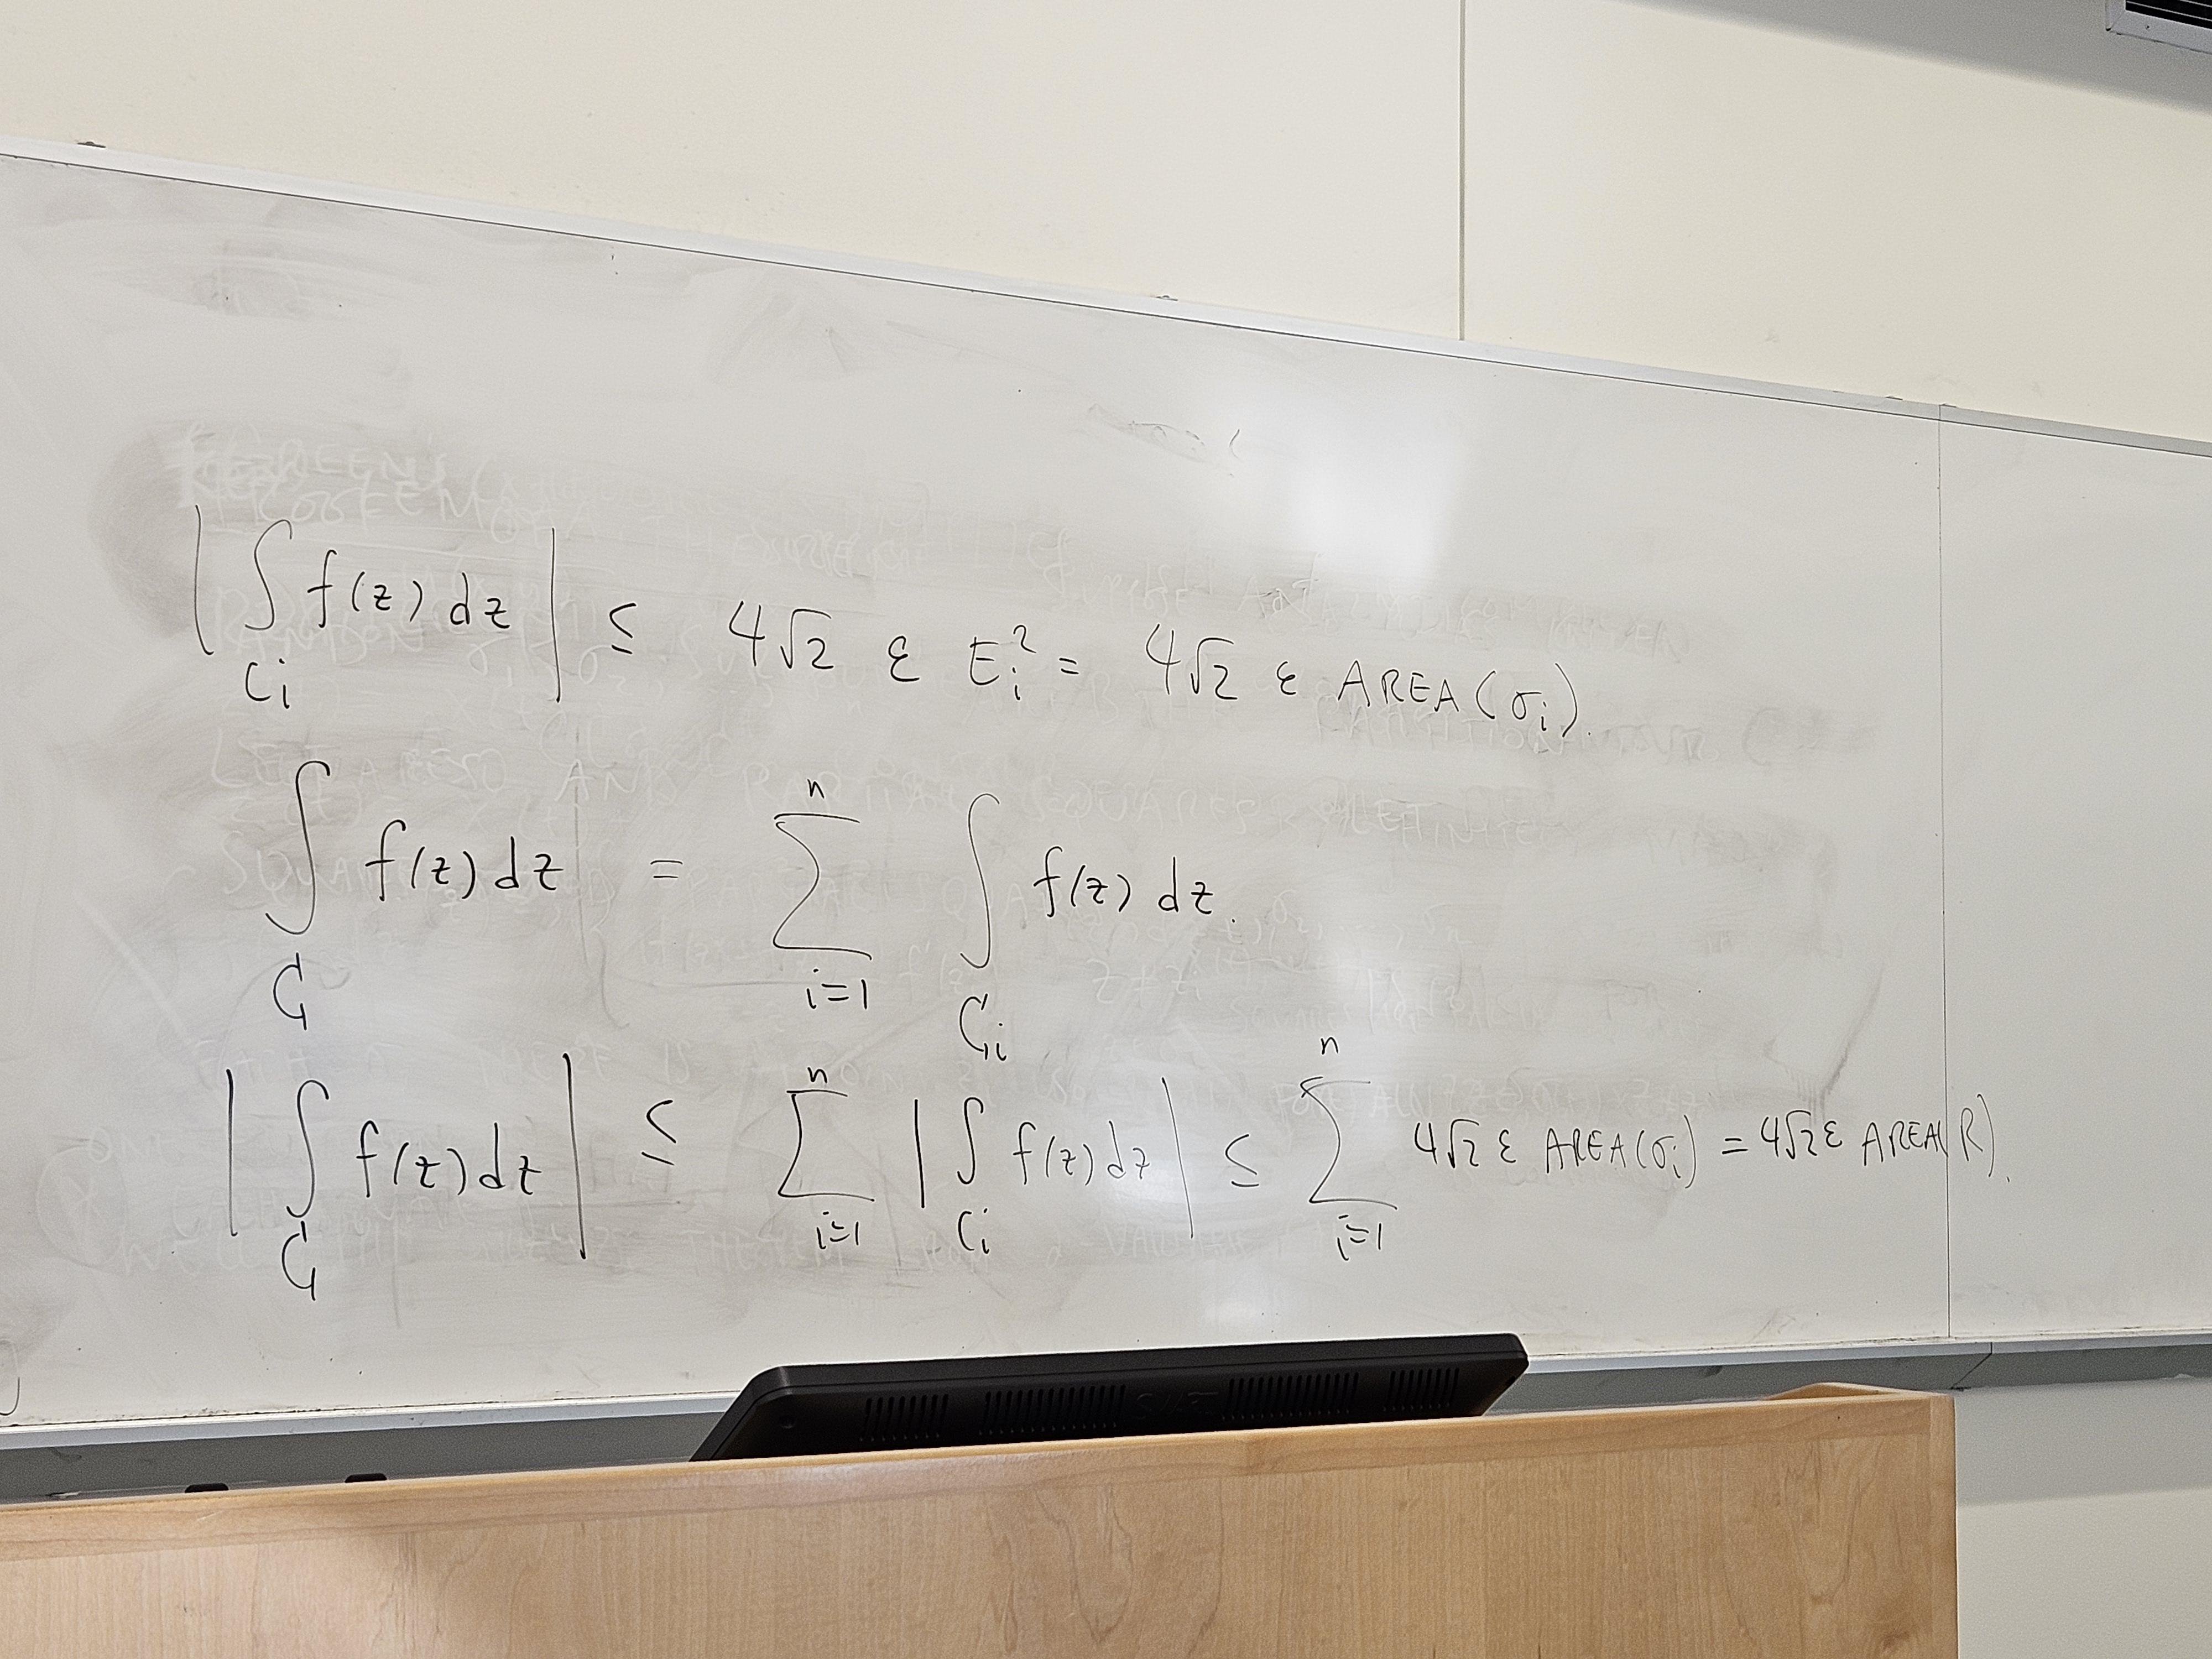 | ∫_{C_i} f(z) dz | ≤ 4√2 ε E_i² = 4√2 ε AREA(σ_i).
∫_C f(z) dz = ∑_{i=1}^{n} ∫_{C_i} f(z) dz.
| ∫_C f(z) dz | ≤ ∑_{i=1}^{n} | ∫_{C_i} f(z) dz | ≤ ∑_{i=1}^{n} 4√2 ε AREA(σ_i) = 4√2 ε AREA(R).